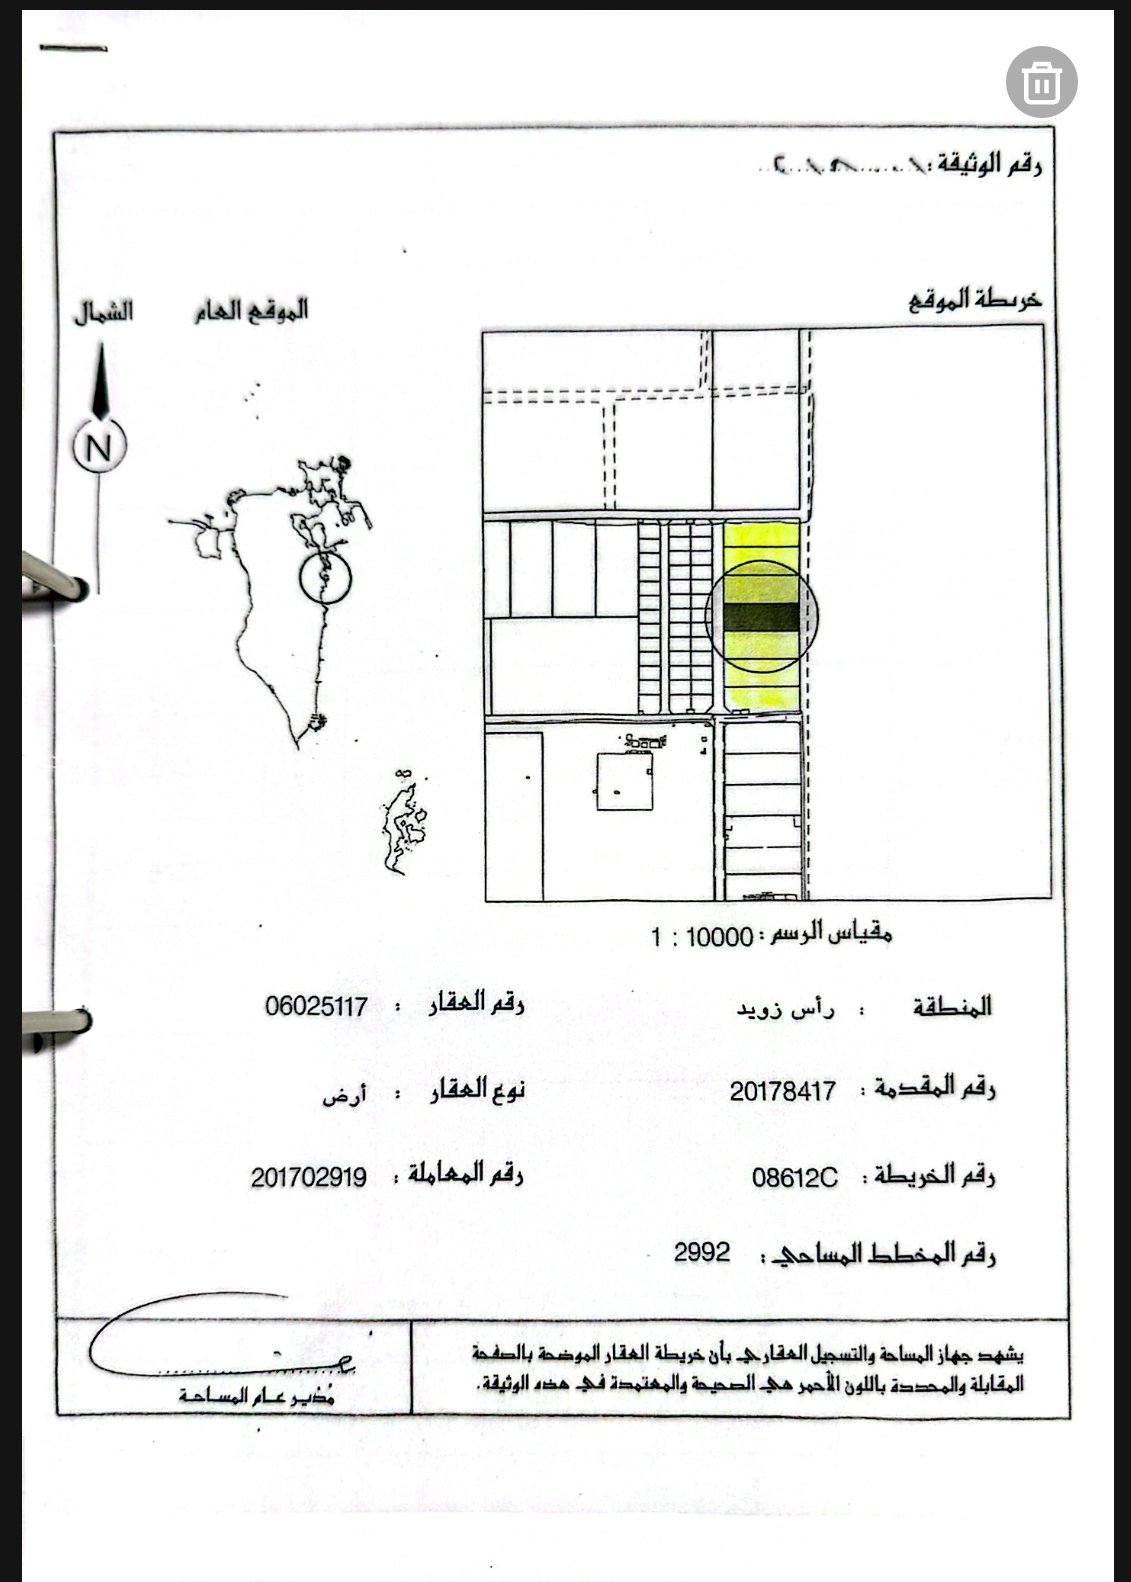 رقم الوثيقة :
خريطة الموقع
الموقع العام
الشمال
N
مقياس الرسم : 10000 : 1
المنطقة : رأس زويد
رقم العقار : 06025117
رقم المقدمة : 20178417
نوع العقار : أرض
رقم الخريطة : 08612C
رقم المعاملة : 201702919
رقم المخطط المساحي : 2992
يشهد جهاز المساحة والتسجيل العقاري بأن خريطة العقار الموضحة بالصفحة
المقابلة والمحددة باللون الأحمر هي الصحيحة والمعتمدة في هذه الوثيقة.
مُدير عام المساحة